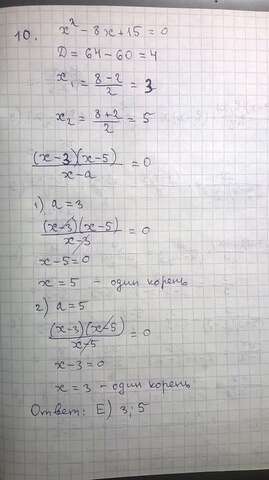 10. x² - 8x + 15 = 0
D = 64 - 60 = 4
x₁ = (8-2)/2 = 3
x₂ = (8+2)/2 = 5
(x-3)(x-5)/(x-a) = 0
1) a = 3
(x-3)(x-5)/(x-3) = 0
x-5=0
x = 5 - один корень
2) a = 5
(x-3)(x-5)/(x-5) = 0
x-3=0
x = 3 - один корень
Ответ: E) 3; 5